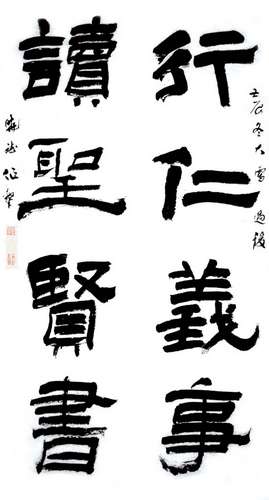 壬辰冬大雪過後
行仁義事
讀聖賢書